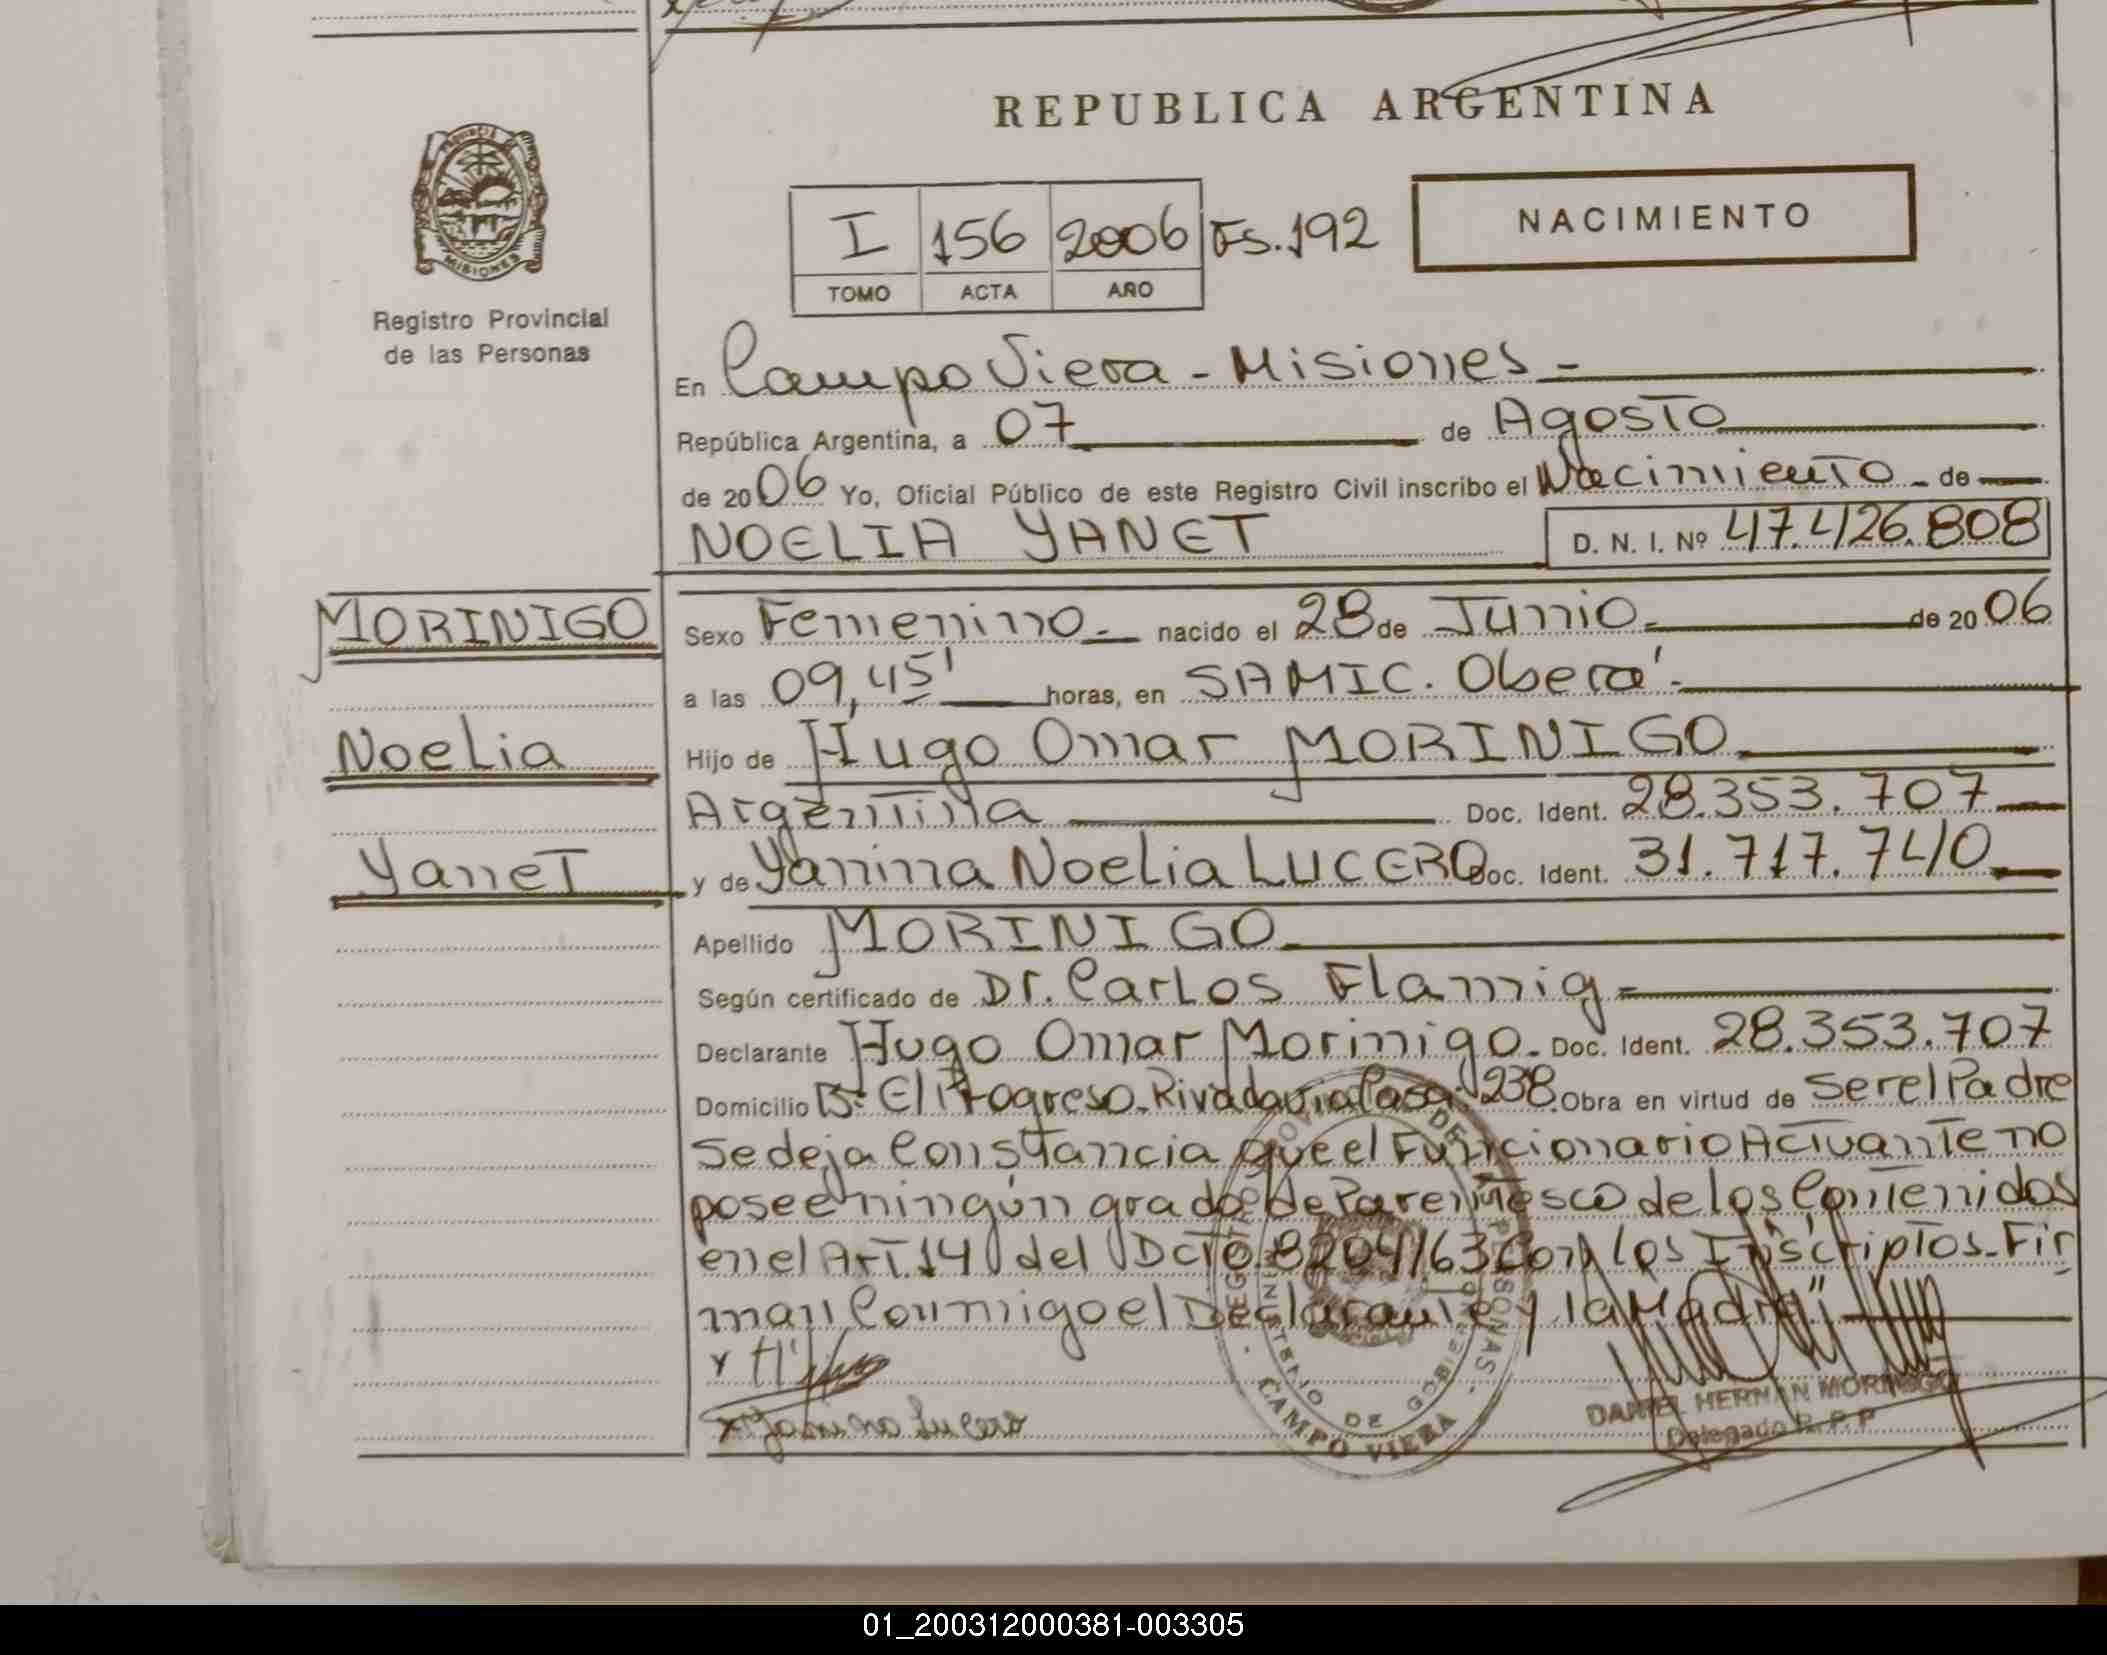 REPUBLICA ARGENTINA
PROVINCIA
MISIONES
Registro Provincial
de las Personas
I 156 2006 Fs.192
TOMO ACTA AÑO
NACIMIENTO
En Campo Viera - Misiones -
República Argentina, a 07 de Agosto
de 2006 Yo, Oficial Público de este Registro Civil inscribo el Nacimiento - de
NOELIA YANET D. N. I. Nº 47.426.808
MORINIGO
Noelia
Yanet
Sexo Femenino - nacido el 28 de Junio - de 2006
a las 09,45' horas, en SAMIC. Oberá -
Hijo de Hugo Omar MORINIGO
Argentina Doc. Ident. 28.353.707
y de Yanina Noelia LUCERO Doc. Ident. 31.717.740
Apellido MORINIGO
Según certificado de Dr. Carlos Flamig
Declarante Hugo Omar Morinigo. Doc. Ident. 28.353.707
Domicilio Bº El Progreso. Rivadavia Casa: 238. Obra en virtud de Ser el Padre
Se deja Constancia que el Funcionario Actuante no
posee ningún grado de Parentesco de los Contenidos
en el Art. 14 del Dcto. 8204/63 Con los Inscriptos - Fir
man Conmigo el Declarante y la Madre"
x Yanina Lucero
REGISTRO PROVINCIAL DE LAS PERSONAS
MINISTERIO DE GOBIERNO
CAMPO VIERA
DANIEL HERNAN MORINIGO
Delegado R. P. P
01_200312000381-003305